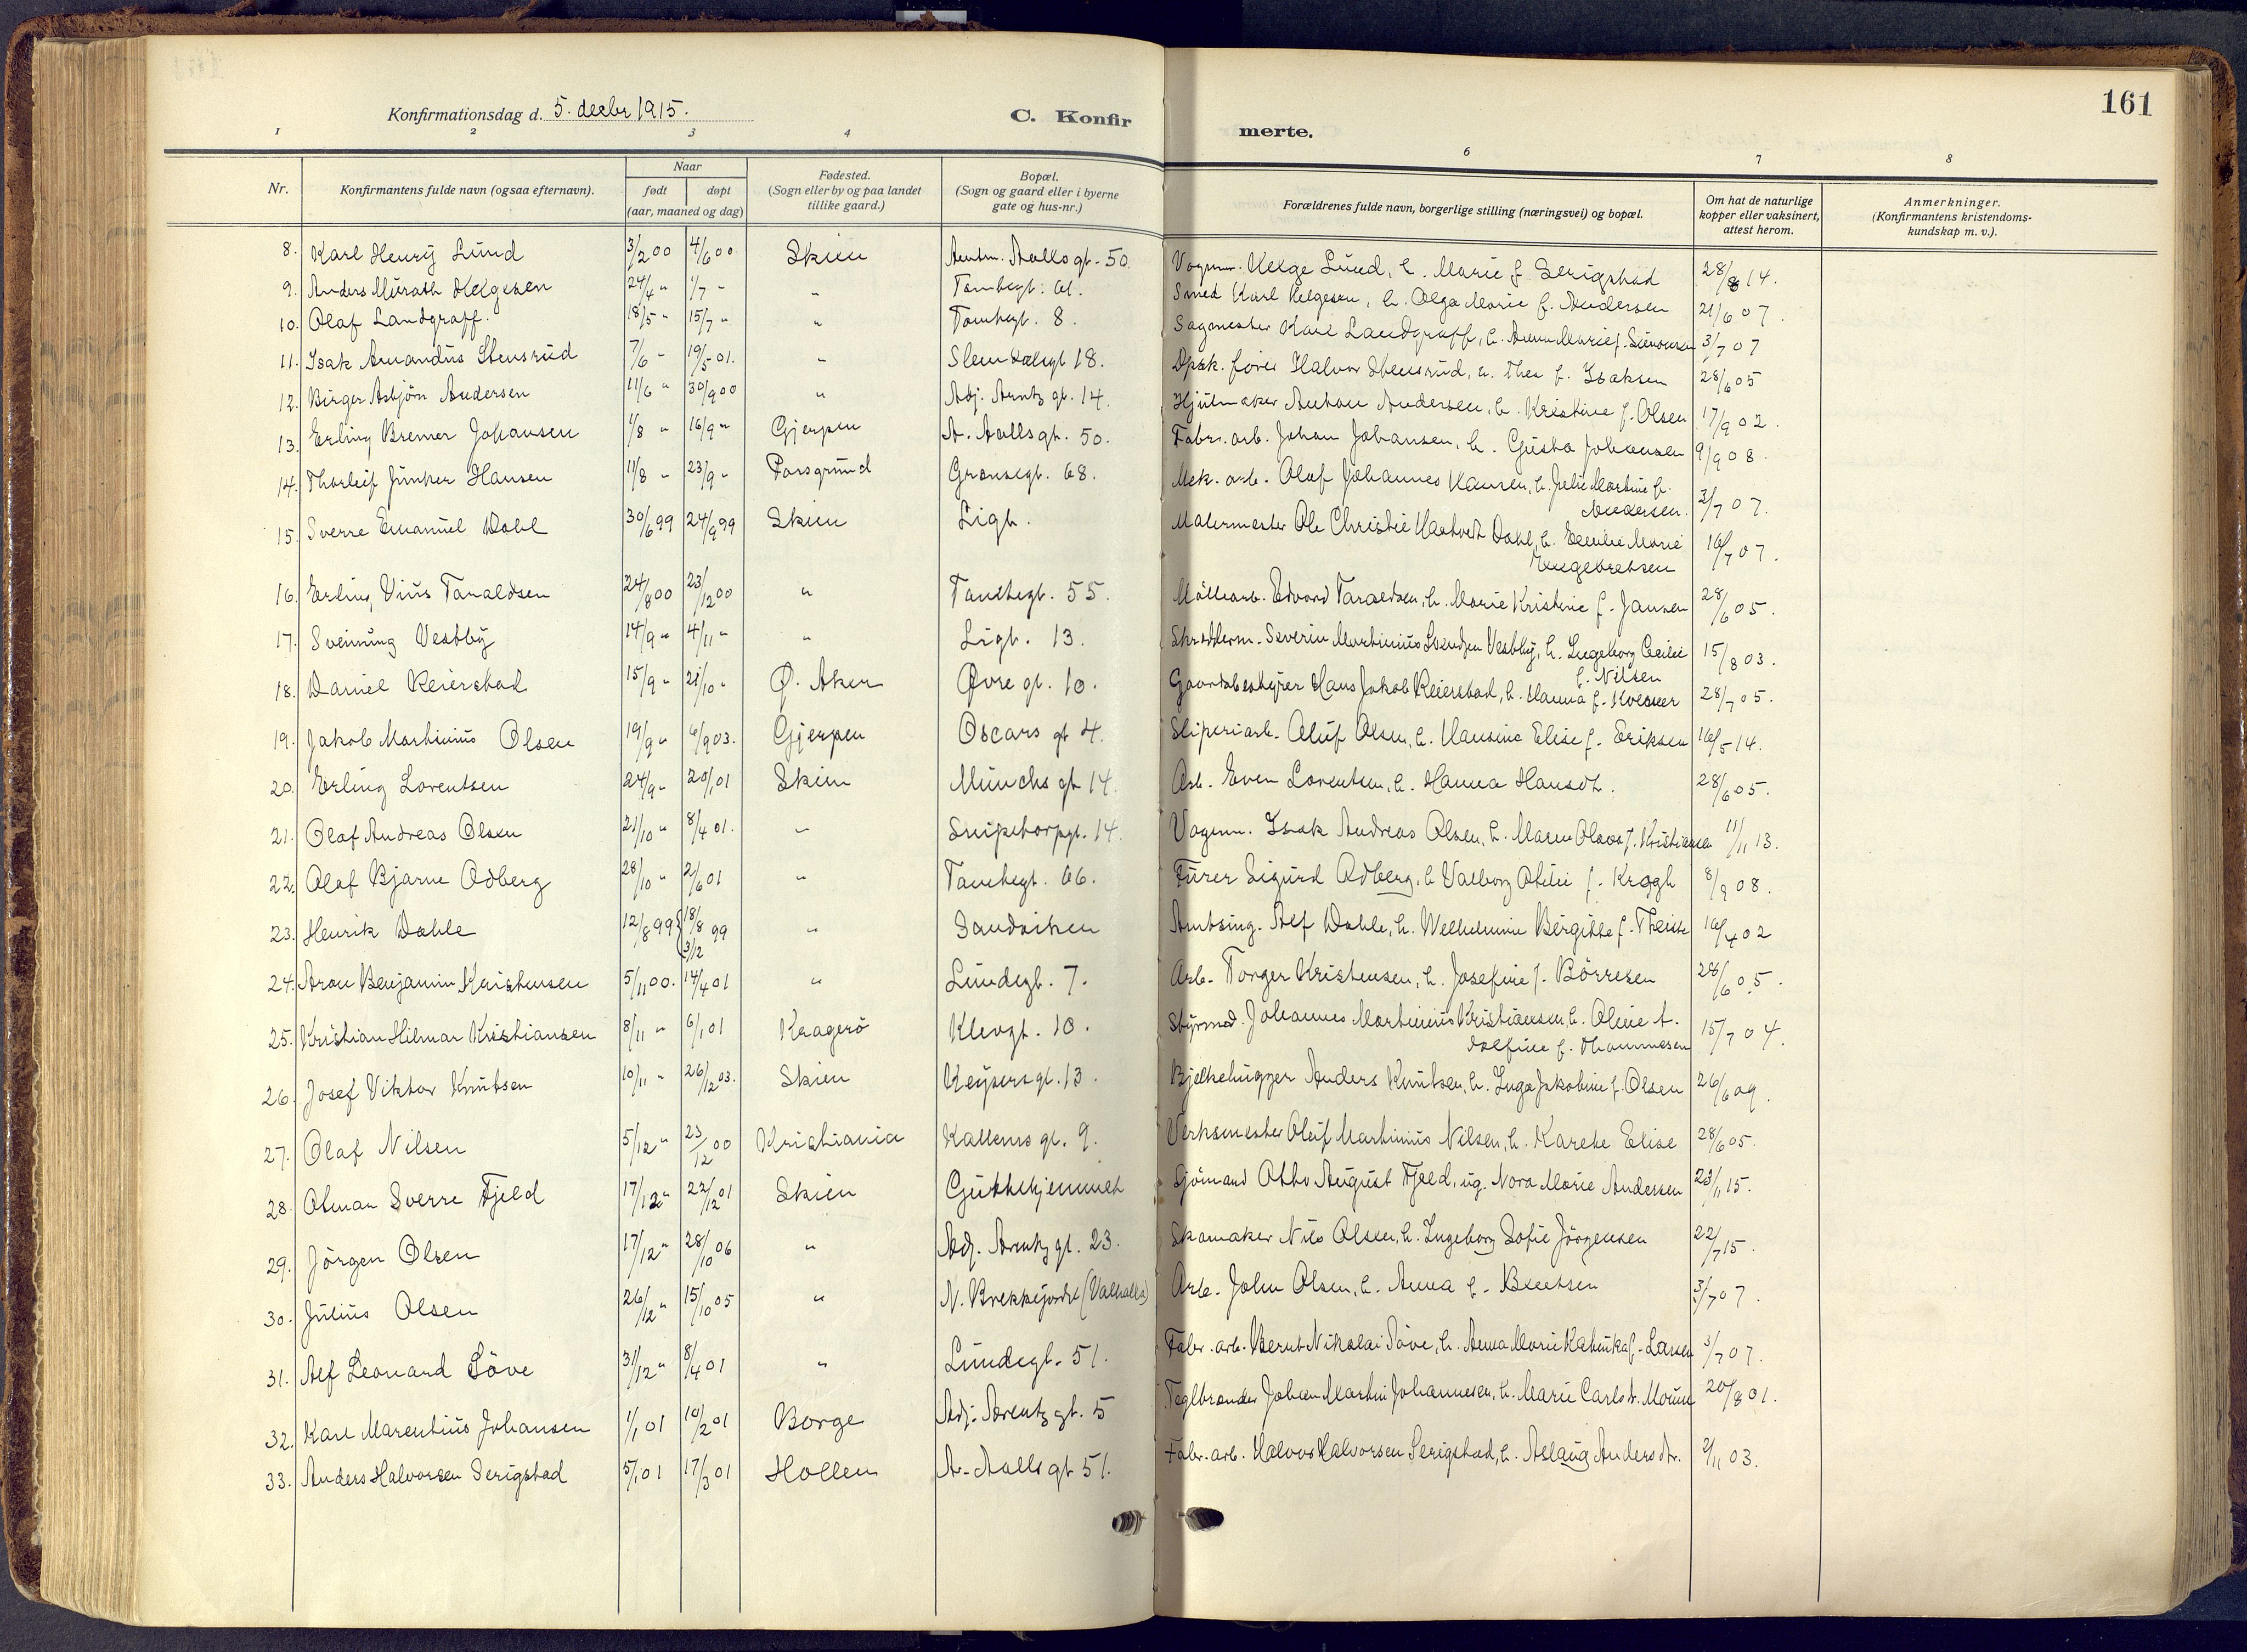 161
Konfirmationsdag d. 5. decbr 1915.
C. Konfirmerte.
1 2 3 4 6 7 8
Nr.
Konfirmantens fulde navn (ogsaa efternavn).
Naar
født
døpt
(aar, maaned og dag)
Fødested.
(Sogn eller by og paa landet
tillike gaard.)
Bopæl.
(Sogn og gaard eller i byerne
gate og hus-nr.)
Forældrenes fulde navn, borgerlige stilling (næringsvei) og bopæl.
Om hat de naturlige
kopper eller vaksinert,
attest herom.
Anmerkninger.
(Konfirmantens kristendoms-
kundskap m. v.).
8. Karl Henry Lund 3/2 00 4/6 00 Skien Amtm. Aallsgt. 50. Vognm. Helge Lund, h. Marie f. Serigstad 28/8 14.
9. Anders Murath Helgesen 24/4 " 1/7 " " Tomtegt. 61. Smed Karl Helgesen, h. Olga Marie f. Andersen 21/6 07.
10. Olaf Landgraff. 18/5 " 15/7 " " Tomtegt. 8. Sagmester Karl Landgraff, h. Anna Marie f. Simonsen 3/7 07
11. Isak Amandus Stensrud 7/6 " 19/5 01. " Slemdalsgt 18. Dpsk. fører Halvor Stensrud, h. Thea f. Isaksen 28/6 05
12. Birger Asbjørn Andersen 11/6 " 30/9 00 " Adj. Arntz gt. 14. Hjulmaker Anton Andersen, h. Kristine f. Olsen 17/9 02.
13. Erling Bremer Johansen 1/8 " 16/9 " Gjerpen A. Aallsgt. 50. Fabr. arb. Johan Johansen, h. Gusta Johansen 9/9 08.
14. Thorleif Junker Hansen 11/8 " 23/9 " Porsgrund Grønsegt. 68. Mek. arb. Olaf Johannes Hansen, h. Julie Martine f.
Andersen. 3/7 07.
15. Sverre Emanuel Dahl 30/6 99 24/9 99 Skien Ligt. Malermester Ole Christie Hartvedt Dahl, h. Emilie Marie
Engebretsen 16/7 07.
16. Erling Vius Taraldsen 24/8 00 23/12 00 " Tomtegt. 55. Møllearb. Edvard Taraldsen, h. Marie Kristine f. Jansen 28/6 05.
17. Sveinung Vestby 14/9 " 4/11 " " Ligt. 13. Skrædderm. Severin Martinius Svendsen Vestby, h. Ingeborg Cecilie
f. Nilsen 15/8 03.
18. Daniel Reierstad 15/9 " 21/10 " Ø. Aker Øvre gt. 10. Gaardsbestyrer Hans Jakob Reierstad, h. Hanna f. 28/7 05.
19. Jakob Martinius Olsen 19/9 " 6/9 03. Gjerpen Oscars gt 4. Sliperiarb. Oluf Olsen, h. Hansine Elise f. Eriksen 16/5 14.
20. Erling Lorentsen 24/9 " 20/1 01 Skien Munchs gt 14. Arb. Even Lorentsen, h. Hanna Hansdt. 28/6 05.
21. Olaf Andreas Olsen 21/10 " 8/4 01. " Snipetorpgt. 14. Vognm. Isak Andreas Olsen, h. Maren Olava f. Kristiansen 11/11 13.
22. Olaf Bjarne Odberg 28/10 " 2/6 01 " Tomtegt. 66. Furer Sigurd Odberg, h Valborg Otilie f. Krogh 8/9 08.
23. Henrik Dahle 12/8 99 { 18/8 99
3/12
" Sandviken Amtsing. Alf Dahle, h. Wilhelmine Birgitte f. Theiste 16/4 02
24. Aron Benjamin Kristensen 5/11 00. 14/4 01 " Lundegt. 7. Arb. Torger Kristensen, h. Josefine f. Børresen 28/6 05.
25. Kristian Hilmar Kristiansen 8/11 " 6/1 01 Kragerø Klevgt. 10. Styrmd. Johannes Martinius Kristiansen, h. Oline A-
dolfine f. Thommesen 15/7 04.
26. Josef Viktor Knutsen 10/11 " 26/12 03. Skien Keysersgt. 13. Bjelkehugger Anders Knutsen, h. Inga Jakobine f. Olsen 26/6 09.
27. Olaf Nilsen 5/12 " 23/12 00 Kristiania Kallems gt. 9. Verksmester Oluf Martinius Nilsen, h. Karete Elise 28/6 05.
28. Otmar Sverre Fjeld 17/12 " 22/12 01 Skien Guttehjemmet Sjømand Otto August Fjeld, ug. Nora Marie Andersen 23/11 15.
29. Jørgen Olsen 17/12 " 28/10 06 " Adj. Arentz gt. 23. Skomaker Nils Olsen, h. Ingeborg Sofie Jørgensen 22/7 15.
30. Julius Olsen 26/12 " 15/10 05 " N. Brekkejordet (Valhalla) Arb. John Olsen, h. Anna f. Bentsen 3/7 07.
31. Alf Leonard Løve 31/12 " 8/4 01 " Lundegt. 51. Fabr. arb. Bernt Nikolai Løve, h. Anna Marie Katinka f. Larsen 3/7 07.
32. Karl Marentius Johansen 1/1 01 10/2 01 Borge Adj. Arentz gt. 5 Teglbrænder Johan Martin Johannesen, h. Marie Carlsdt. Moum 20/8 01.
33. Anders Halvorsen Serigstad 5/1 01 17/3 01 Hollen A. Aalls gt 51. Fabr. arb. Halvor Halvorsen Serigstad, h. Aslaug Andersdtr. 9/11 03.